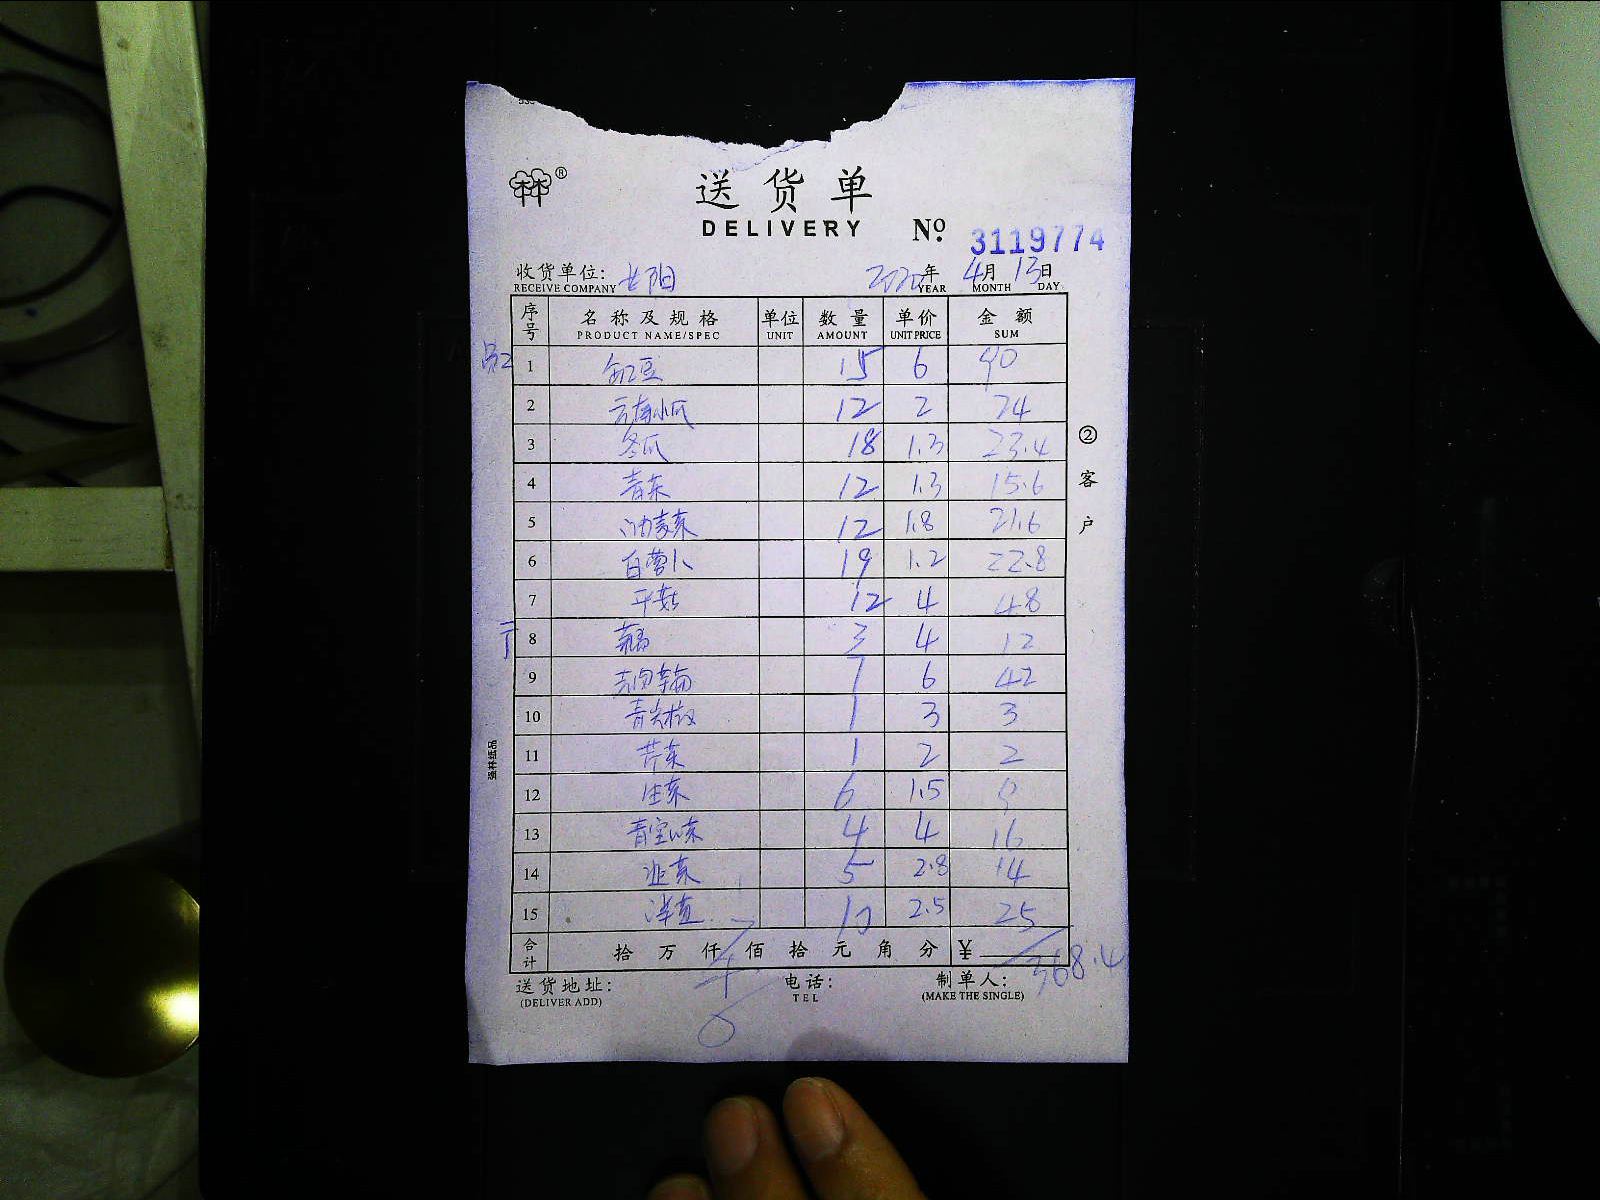 ®
送货单
DELIVERY No. 3119774
收货单位: 长阳 2020年 4月 13日
RECEIVE COMPANY YEAR MONTH DAY
序号 名称及规格 单位 数量 单价 金额
PRODUCT NAME/SPEC UNIT AMOUNT UNIT PRICE SUM
1 缸豆 15 6 90
2 云南小瓜 12 2 24
3 冬瓜 18 1.3 23.4
4 青东 12 1.3 15.6
5 油麦东 12 1.8 21.6
6 白萝卜 19 1.2 22.8
7 平菇 12 4 48
8 3 4 12
9 7 6 42
10 青尖椒 1 3 3
11 芹东 1 2 2
12 生东 6 1.5 9
13 4 4 16
14 韭东 5 2.8 14
15 10 2.5 25
合计 拾 万 仟 佰 拾 元 角 分 ¥ 368.4
送货地址: 电话: 制单人:
(DELIVER ADD) TEL (MAKE THE SINGLE)
②客户
强林纸品